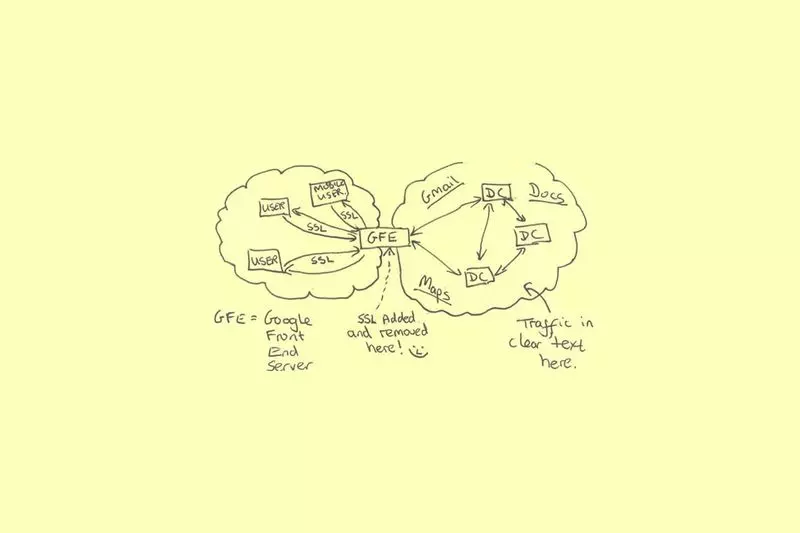 MOBILE
USER
USER
SSL
SSL
GFE
USER
SSL
Gmail
DC
Docs
DC
DC
Maps
GFE = Google
Front
End
Server
SSL Added
and removed
here! :)
Traffic in
clear text
here.